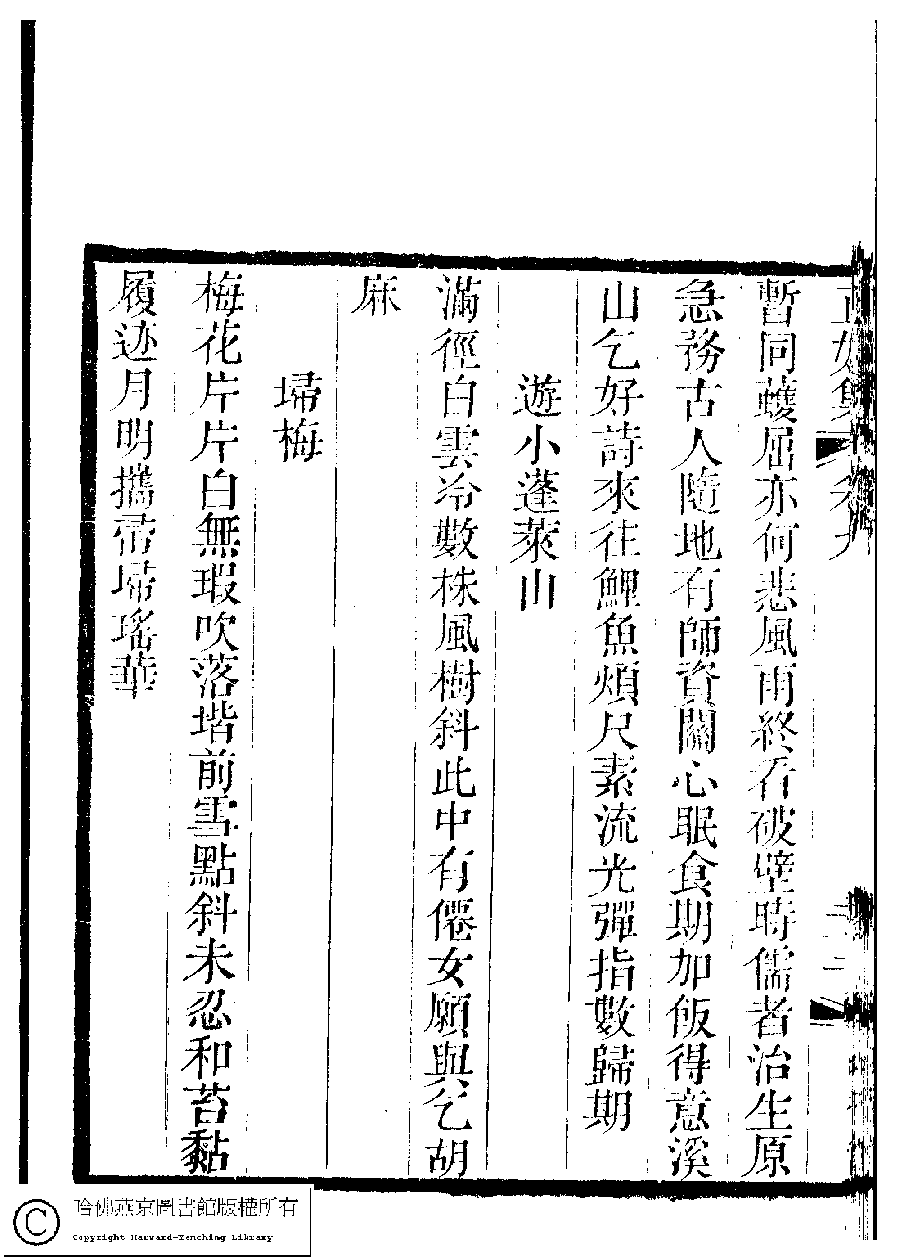 正始集 卷九 二
暫同蠖屈亦何悲風雨終看破壁時儒者治生原
急務古人隨地有師資關心眠食期加飯得意溪
山乞好詩來往鯉魚煩尺素流光彈指數歸期
遊小蓬萊山
滿徑白雲冷數株風樹斜此中有僊女願與乞胡
麻
埽梅
梅花片片白無瑕吹落堦前雪點斜未忍和苔黏
履迹月明攜帚埽瑤華
哈佛燕京圖書館版權所有
Copyright Harvard-Yenching Library